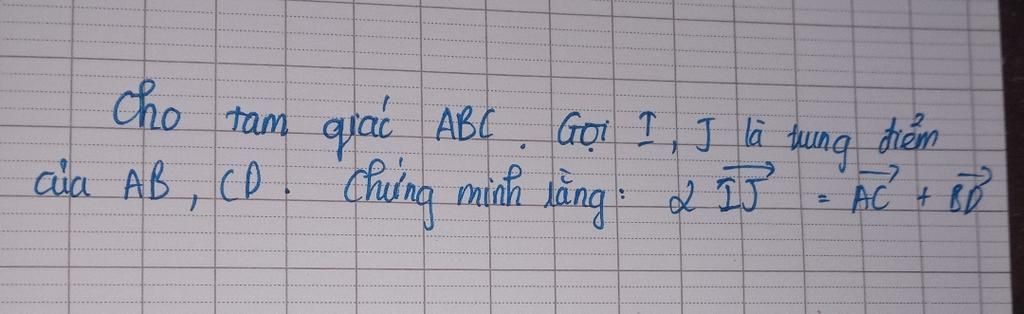 Cho tam giác ABC. Gọi I, J là trung điểm
của AB, CD. Chứng minh rằng: 2 \overrightarrow{IJ} = \overrightarrow{AC} + \overrightarrow{BD}